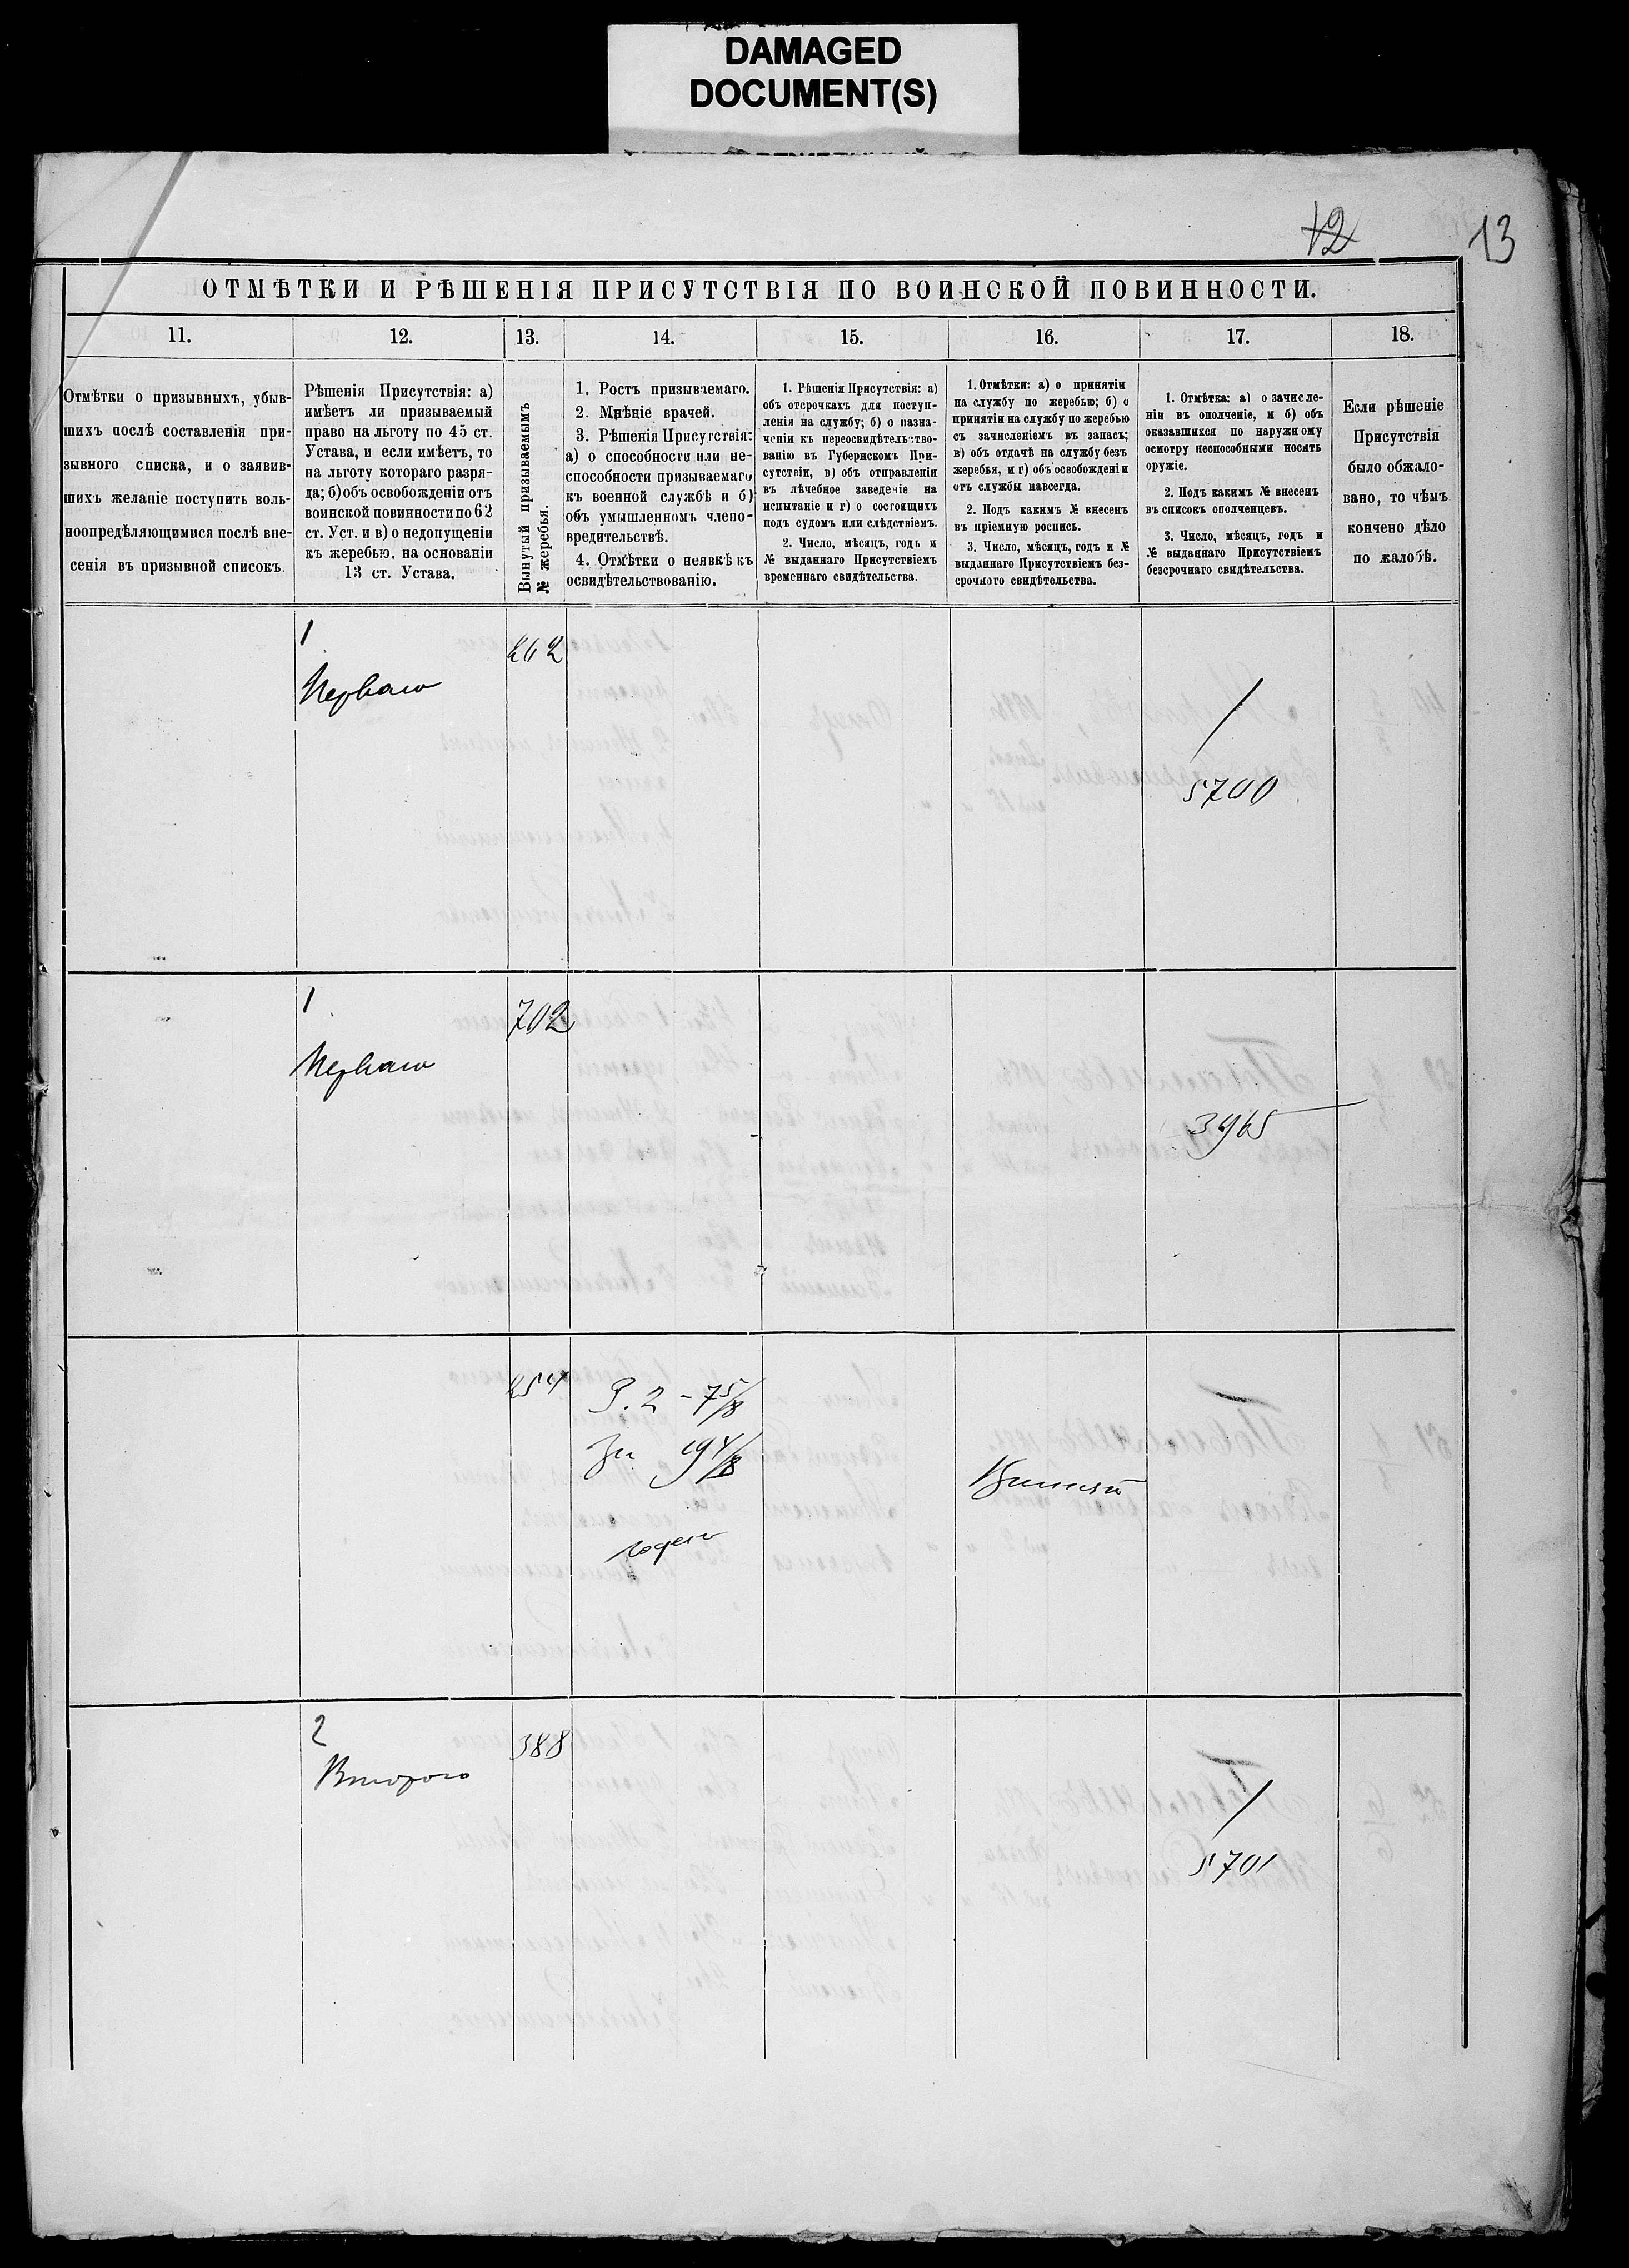 DAMAGED
DOCUMENT(S)
12 13
ОТМѢТКИ И РѢШЕНІЯ ПРИСУТСТВІЯ ПО ВОИНСКОЙ ПОВИННОСТИ.
11. 12. 13. 14. 15. 16. 17. 18.
Отмѣтки о призывныхъ, убыв-
шихъ послѣ составленія при-
зывного списка, и о заявив-
шихъ желаніе поступить воль-
ноопредѣляющимися послѣ вне-
сенія въ призывной списокъ.
Рѣшенія Присутствія: а)
имѣетъ ли призываемый
право на льготу по 45 ст.
Устава, и если имѣетъ, то
на льготу котораго разря-
да; б) объ освобожденіи отъ
воинской повинности по 62
ст. Уст. и в) о недопущеніи
къ жеребью, на основаніи
13 ст. Устава.
Вынутый призываемымъ
№ жеребья.
1. Ростъ призываемаго.
2. Мнѣніе врачей.
3. Рѣшенія Присутствія:
а) о способности или не-
способности призываемаго
къ военной службѣ и б)
объ умышленномъ члено-
вредительствѣ.
4. Отмѣтки о неявкѣ къ
освидѣтельствованію.
1. Рѣшенія Присутствія: а)
объ отсрочкахъ для поступ-
ленія на службу; б) о назна-
ченіи къ переосвидѣтельство-
ванію въ Губернскомъ При-
сутствіи, в) объ отправленіи
въ лѣчебное заведеніе на
испытаніе и г) о состоящихъ
подъ судомъ или слѣдствіемъ.
2. Число, мѣсяцъ, годъ и
№ выданнаго Присутствіемъ
временнаго свидѣтельства.
1. Отмѣтки: а) о принятіи
на службу по жеребью; б) о
принятіи на службу по жеребью
съ зачисленіемъ въ запасъ;
в) объ отдачѣ на службу безъ
жеребья, и г) объ освобожденіи
отъ службы навсегда.
2. Подъ какимъ № внесенъ
въ пріемную роспись.
3. Число, мѣсяцъ, годъ и №
выданнаго Присутствіемъ без-
срочнаго свидѣтельства.
1. Отмѣтка: а) о зачисле-
ніи въ ополченіе, и б) объ
оказавшихся по наружному
осмотру неспособными носить
оружіе.
2. Подъ какимъ № внесенъ
въ списокъ ополченцевъ.
3. Число, мѣсяцъ, годъ и
№ выданнаго Присутствіемъ
безсрочнаго свидѣтельства.
Если рѣшеніе
Присутствія
было обжало-
вано, то чѣмъ
кончено дѣло
по жалобѣ.
1 262
Перваго
5700
1 702
Перваго
3965
254 Р. 2 - 7 5/8
годенъ
Принятъ
2 388
Второго
5701